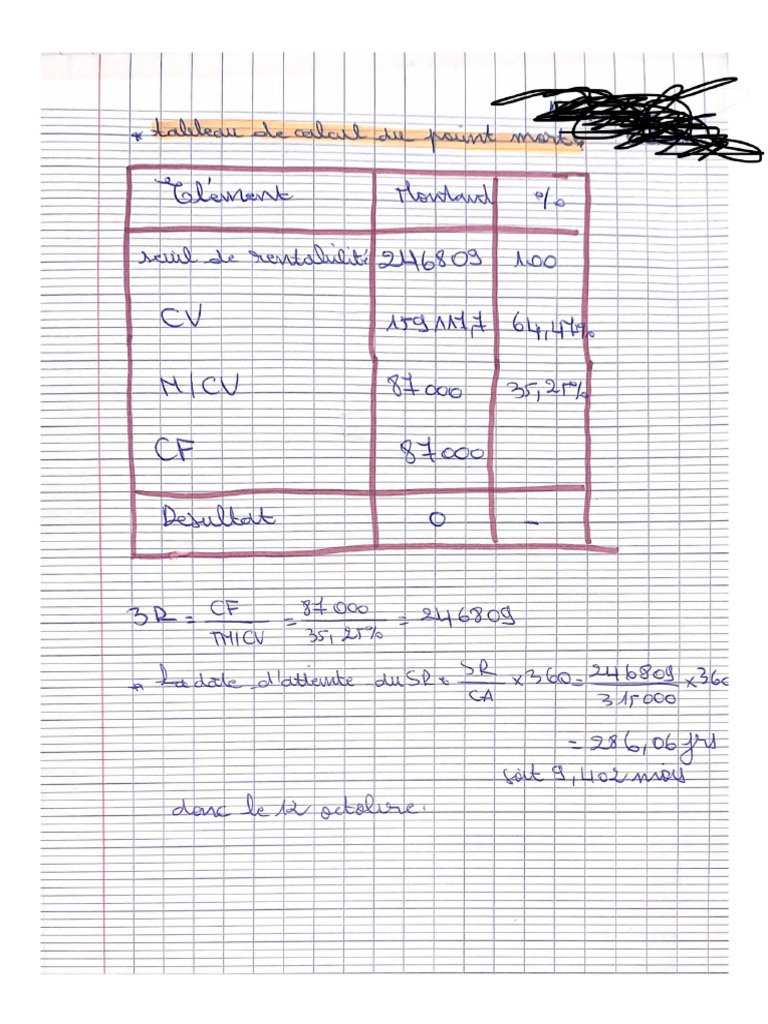 * tableau de calcul du point mort.
Elément Montant %
seuil de rentabilité 246809 100
CV 159117,7 64,47%
M/CV 87000 35,25%
CF 87000
Resultat 0 -
SR = CF / TM/CV = 87000 / 35,25% = 246809
* La date d'atteinte du SR = SR / CA × 360 = 246809 / 315000 × 360
= 286,06 jrs
soit 9,402 mois
donc le 12 octobre.